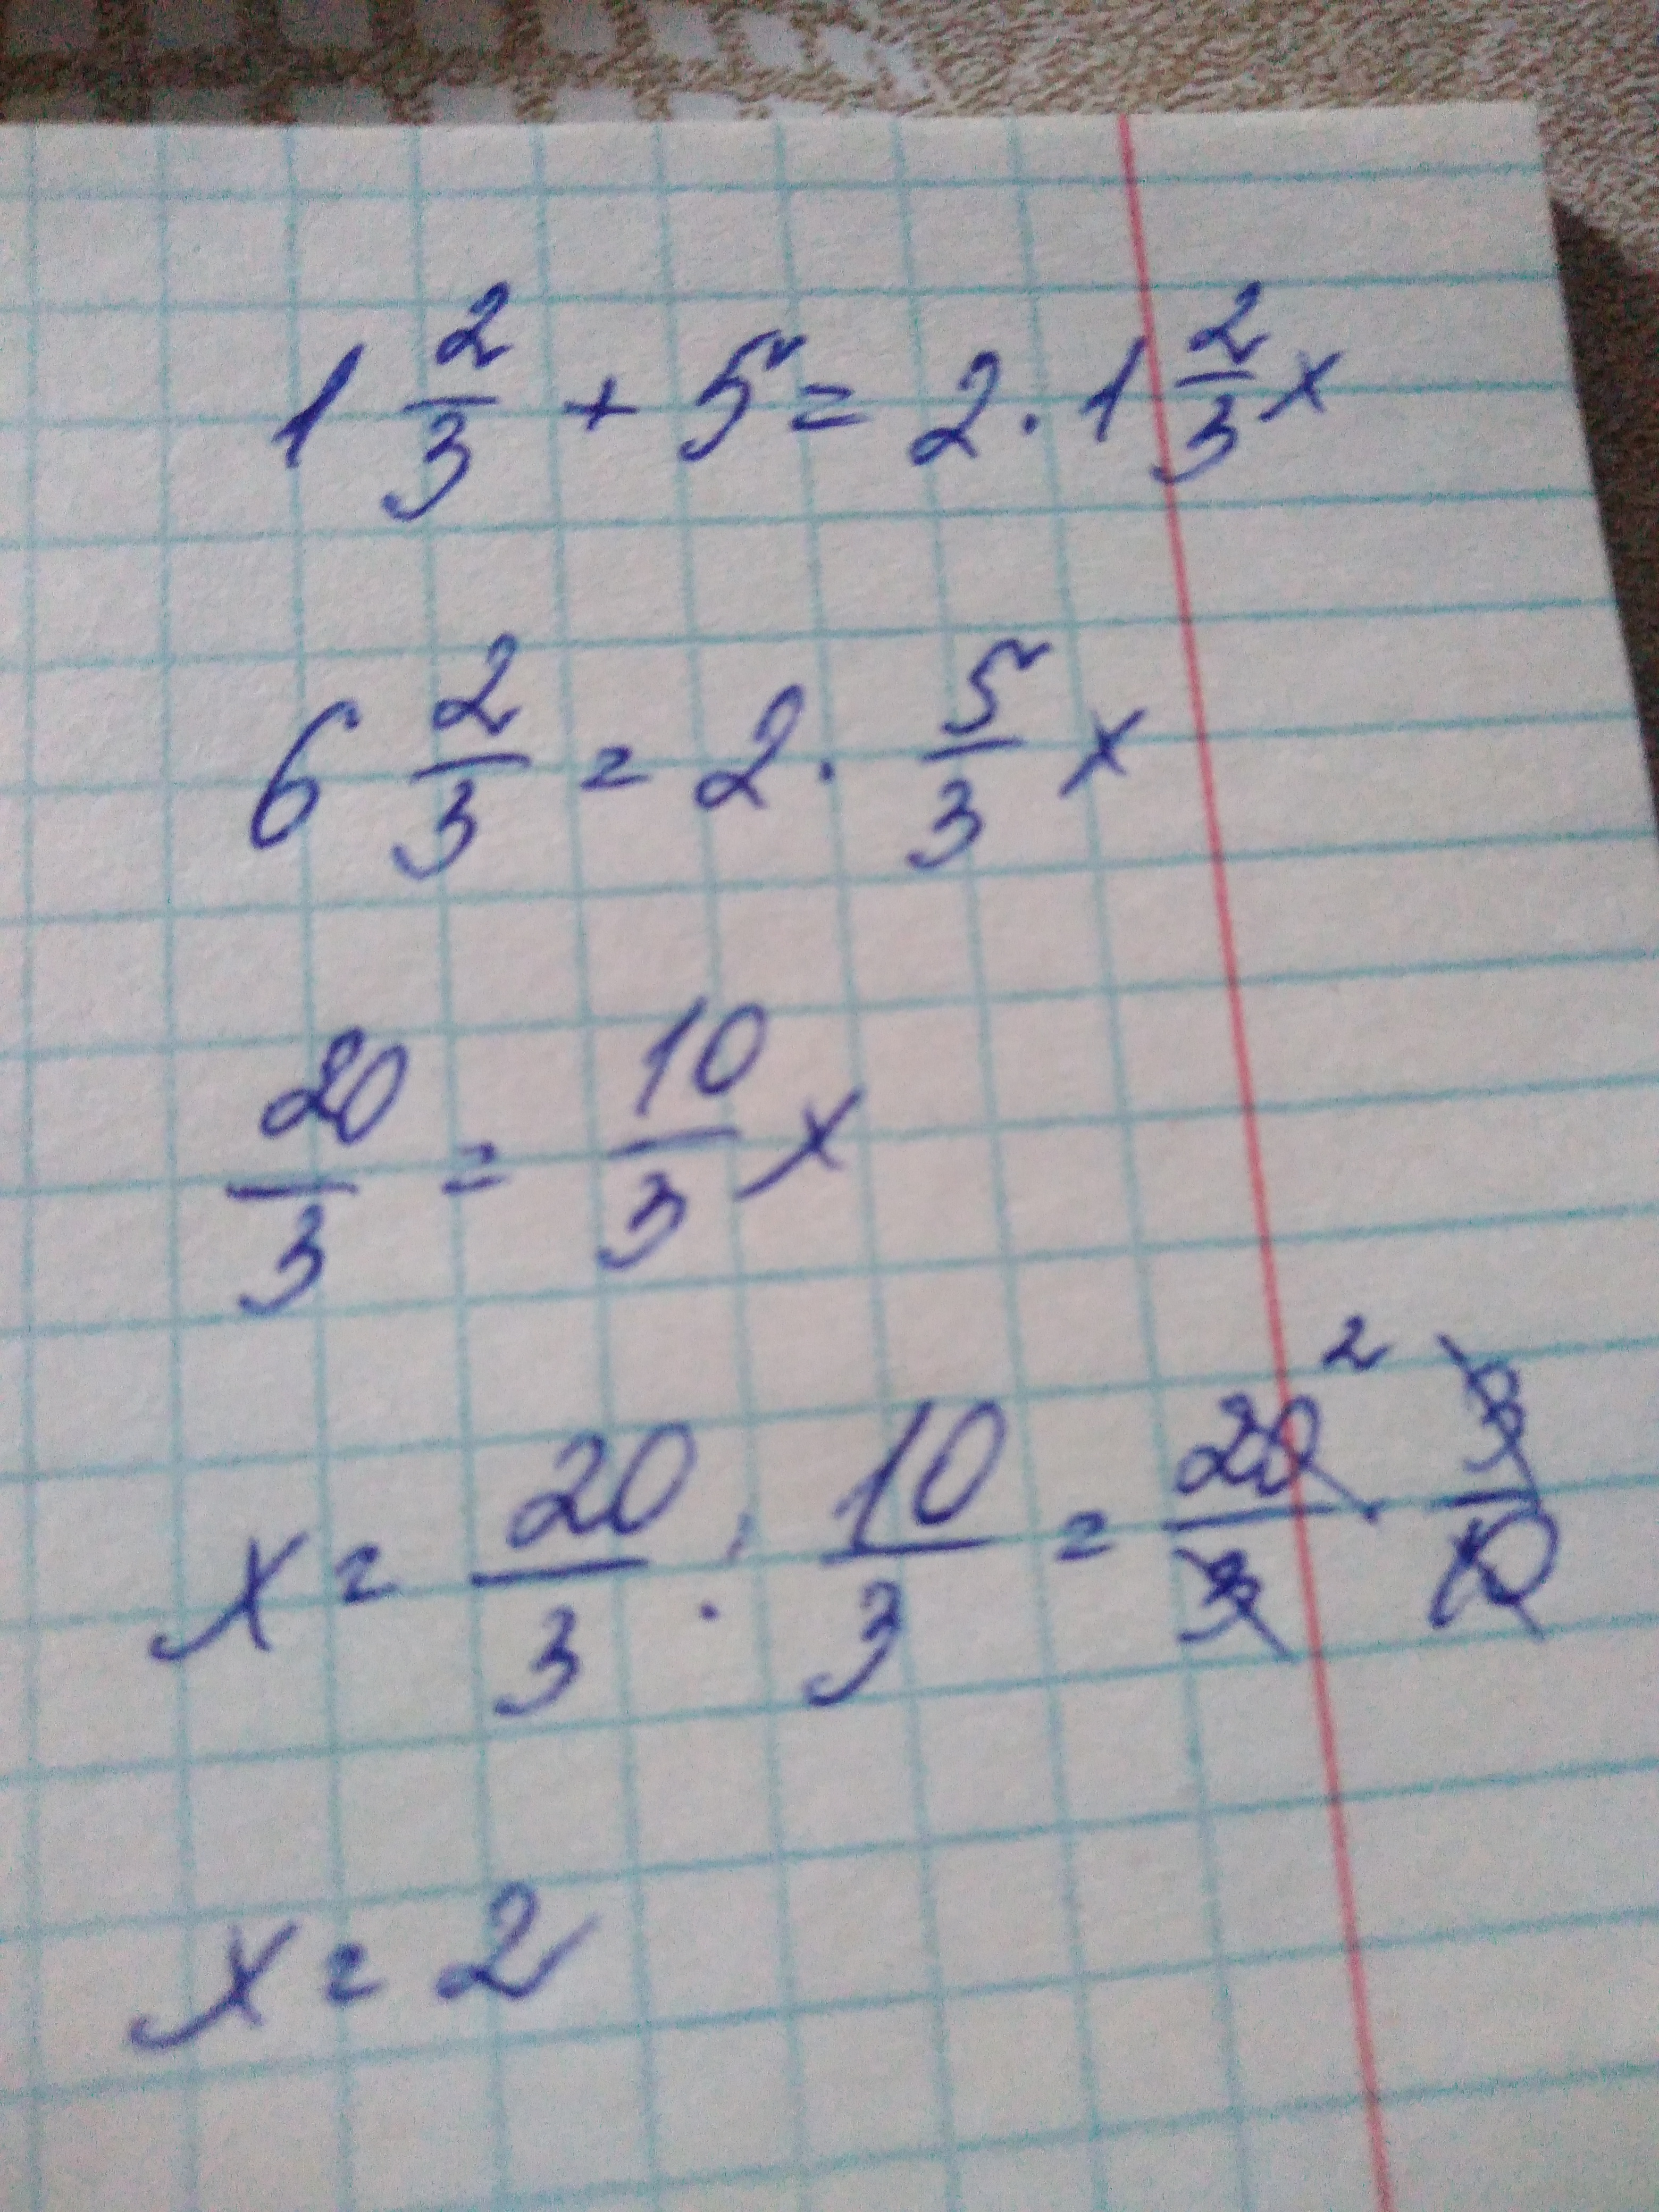 1 2/3 + 5 = 2 · 1 2/3 x
6 2/3 = 2 · 5/3 x
20/3 = 10/3 x
x = 20/3 : 10/3 = 20/3 · 3/10 2
x = 2